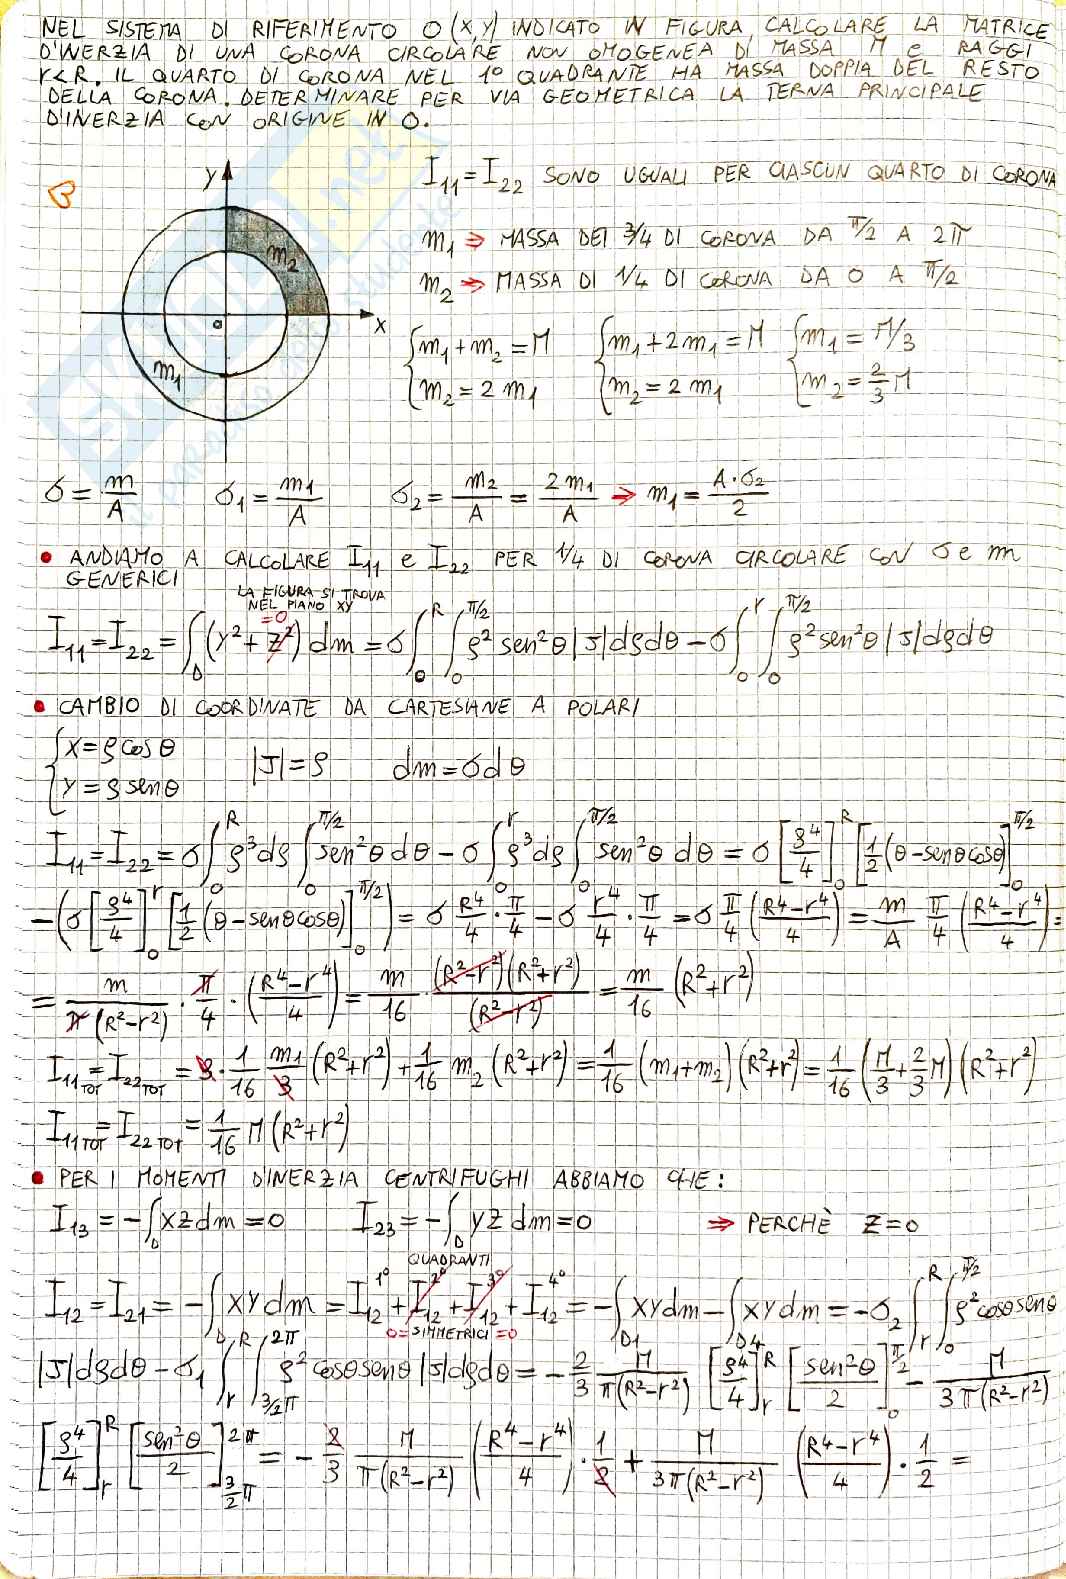 NEL SISTEMA DI RIFERIMENTO O(X,Y) INDICATO IN FIGURA, CALCOLARE LA MATRICE
D'INERZIA DI UNA CORONA CIRCOLARE NON OMOGENEA DI MASSA M e RAGGI
r<R. IL QUARTO DI CORONA NEL 1° QUADRANTE HA MASSA DOPPIA DEL RESTO
DELLA CORONA. DETERMINARE PER VIA GEOMETRICA LA TERNA PRINCIPALE
D'INERZIA CON ORIGINE IN O.
y
x
o
m₂
m₁
I₁₁=I₂₂ SONO UGUALI PER CIASCUN QUARTO DI CORONA
m₁ ⇒ MASSA DEI 3/4 DI CORONA DA π/2 A 2π
m₂ ⇒ MASSA DI 1/4 DI CORONA DA 0 A π/2
{m₁+m₂=M {m₁+2m₁=M {m₁=M/3
{m₂=2m₁ {m₂=2m₁ {m₂=2/3 M
σ=m/A σ₁=m₁/A σ₂=m₂/A=2m₁/A ⇒ m₁=A·σ₂/2
• ANDIAMO A CALCOLARE I₁₁ e I₂₂ PER 1/4 DI CORONA CIRCOLARE CON σ e m
GENERICI
LA FIGURA SI TROVA
NEL PIANO XY
=0
I₁₁=I₂₂=∫_D(y²+z²)dm=σ∫₀^R∫₀^π/2 ρ²sen²θ|J|dρdθ-σ∫₀^r∫₀^π/2 ρ²sen²θ|J|dρdθ
• CAMBIO DI COORDINATE DA CARTESIANE A POLARI
{x=ρcosθ
{y=ρsenθ |J|=ρ dm=σdθ
I₁₁=I₂₂=σ∫₀^R ρ³dρ∫₀^π/2 sen²θdθ-σ∫₀^r ρ³dρ∫₀^π/2 sen²θdθ=σ[ρ⁴/4]₀^R[1/2(θ-senθcosθ)]₀^π/2
-(σ[ρ⁴/4]₀^r[1/2(θ-senθcosθ)]₀^π/2)=σ R⁴/4·π/4-σ r⁴/4·π/4=σ π/4((R⁴-r⁴)/4)=m/A π/4((R⁴-r⁴)/4)=
=m/(π(R²-r²))·π/4·((R⁴-r⁴)/4)=m/16·(R²-r²)(R²+r²)/(R²-r²)=m/16(R²+r²)
I₁₁TOT=I₂₂TOT=3·1/16 m₁/3(R²+r²)+1/16 m₂(R²+r²)=1/16(m₁+m₂)(R²+r²)=1/16(M/3+2/3 M)(R²+r²)
I₁₁TOT=I₂₂TOT=1/16 M(R²+r²)
• PER I MOMENTI D'INERZIA CENTRIFUGHI ABBIAMO CHE:
I₁₃=-∫_D xzdm=0 I₂₃=-∫_D yzdm=0 ⇒ PERCHÈ Z=0
QUADRANTI
I₁₂=I₂₁=-∫_D xydm=I₁₂^1°+I₁₂^2°+I₁₂^3°+I₁₂^4°=-∫_D1 xydm-∫_D4 xydm=-σ₂∫_r^R∫₀^π/2 ρ²cosθsenθ
0=SIMMETRICI=0
|J|dρdθ-σ₁∫_r^R∫_3/2π^2π ρ²cosθsenθ|J|dρdθ=-2/3 M/(π(R²-r²))[ρ⁴/4]_r^R[sen²θ/2]₀^π/2-M/(3π(R²-r²))
[ρ⁴/4]_r^R[sen²θ/2]_3/2π^2π=-2/3 M/(π(R²-r²))((R⁴-r⁴)/4)·1/2+M/(3π(R²-r²))((R⁴-r⁴)/4)·1/2=